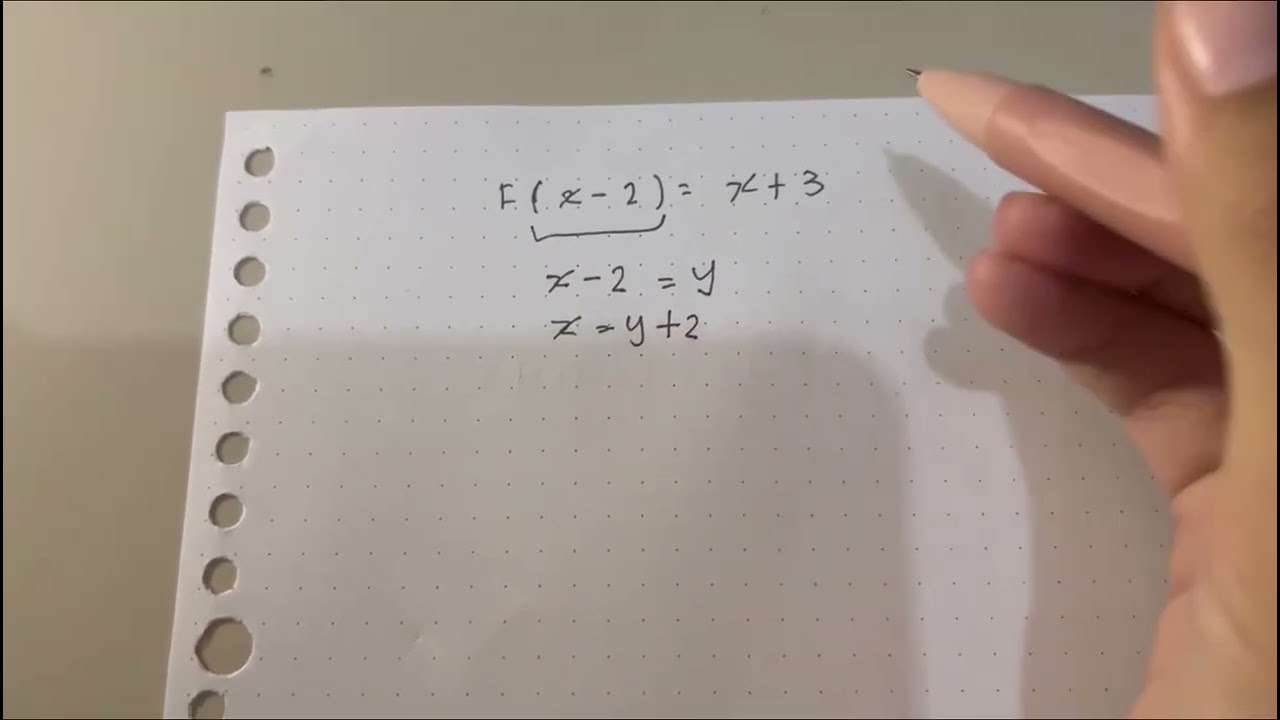 F(x-2)= x+3
x-2 = y
x = y+2